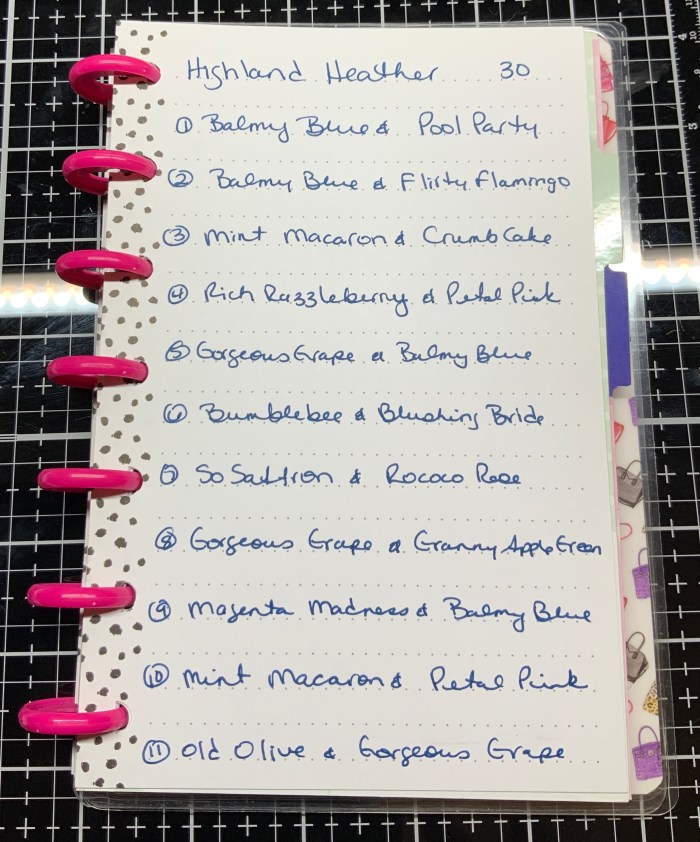 Highland Heather 30
① Balmy Blue & Pool Party
② Balmy Blue & Flirty Flamingo
③ Mint Macaron & Crumb Cake
④ Rich Razzleberry & Petal Pink
⑤ Gorgeous Grape & Balmy Blue
⑥ Bumblebee & Blushing Bride
⑦ So Saffron & Rococo Rose
⑧ Gorgeous Grape & Granny Apple Green
⑨ Magenta Madness & Balmy Blue
⑩ Mint Macaron & Petal Pink
⑪ Old Olive & Gorgeous Grape